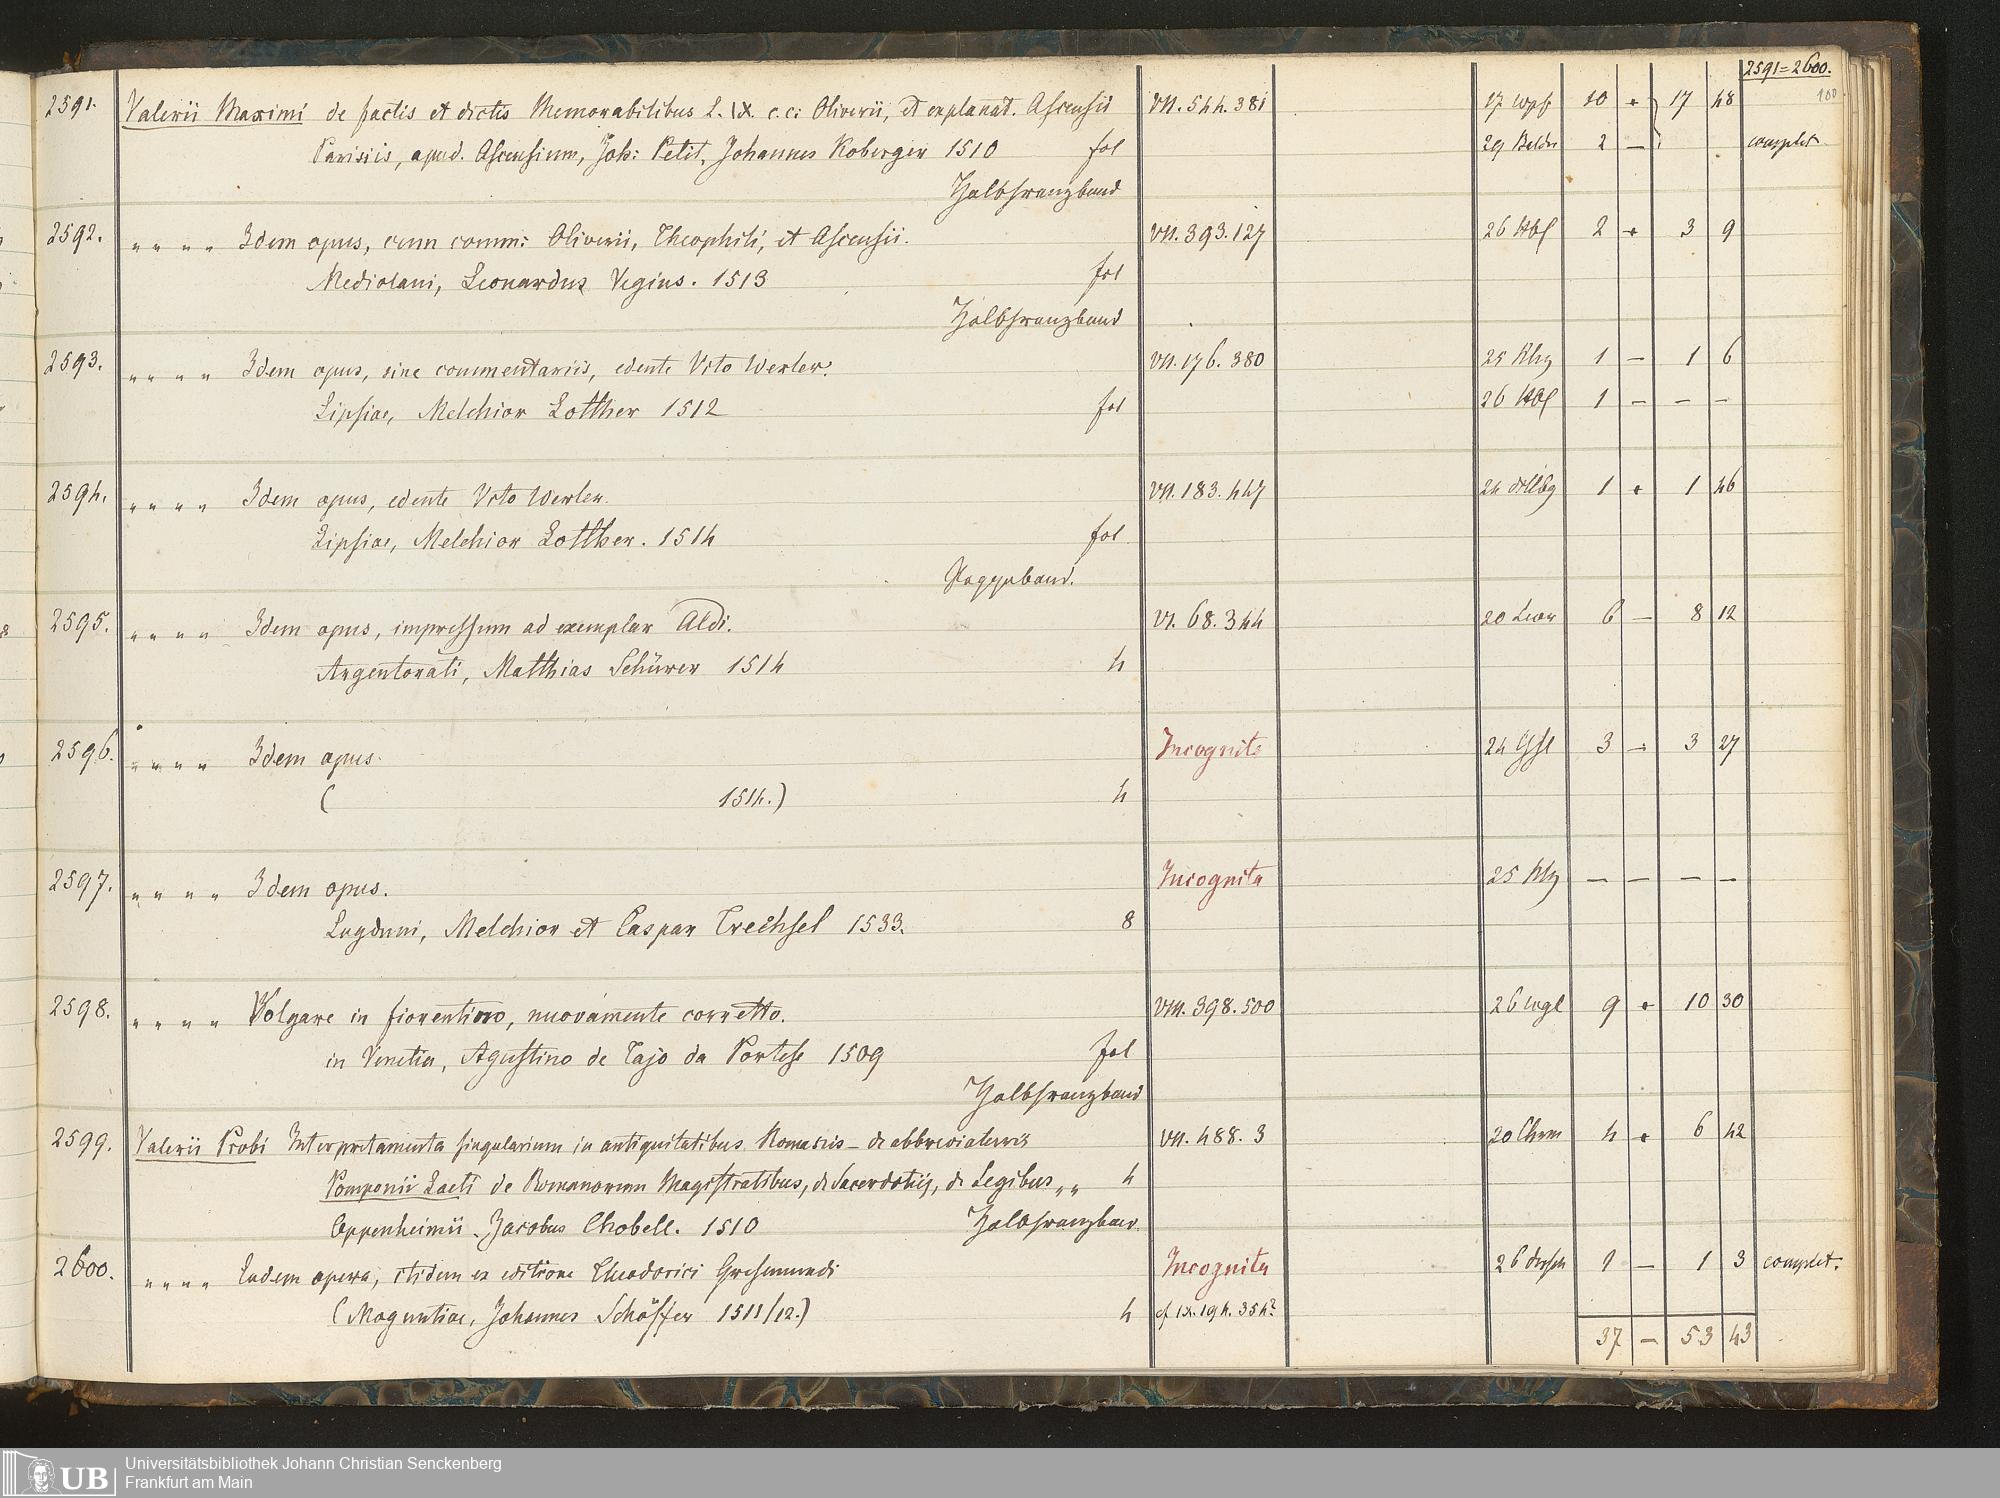 2591=2600.
100.
2591. Valerii Maximi de factis et dictis Memorabilibus L. IX. c. c: Oliverii, et explanat. Ascensii VII. 544. 381 17 10 17 48
Parisiis, apud. Ascensium, Joh: Petit, Johannes Koberger 1510 fol 29 2 — complet.
Halbfranzband
2592. " " " " Idem opus, cum comm: Oliverii, Theophili, et Ascensii. VII. 393. 127 26 2 3 9
Mediolani, Leonardus Vegius. 1513 fol
Halbfranzband
2593. " " " " Idem opus, sine commentariis, edente Vito Werler. VII. 176. 380 25 1 — 1 6
Lipsiae, Melchior Lotther 1512 fol 26 1 — — —
2594. " " " " Idem opus, edente Vito Werler. VII. 183. 447 24 1 1 46
Lipsiae, Melchior Lotther. 1514 fol
Pappband.
2595. " " " " Idem opus, impressum ad exemplar Aldi. VI. 68. 344 20 6 — 8 12
Argentorati, Matthias Schürer 1514 4
2596. " " " " Idem opus. Incognita 24 3 — 3 27
( 1514.) 4
2597. " " " " Idem opus. Incognita 25 — — — —
Lugduni, Melchior et Caspar Trechsel 1533. 8
2598. " " " " Volgare in fiorentino, nuovamente corretto. VIII. 398. 500 26 9 10 30
in Venetia, Agustino de Zajo da Portese 1509 fol
Halbfranzband
2599. Valerii Probi Interpretamenta singularium in antiquitatibus Romanis — de abbreviaturis VII. 488. 3 20 4 6 42
Pomponii Laeti de Romanorum Magistratibus, de Sacerdotiis, de Legibus " " 4
Oppenheimii. Jacobus Chobell. 1510 Halbfranzband
2600. " " " " Eadem opera, itidem ex editione Theodorici Gresemundi Incognita 26 1 — 1 3 complet.
(Moguntiae, Johannes Schöffer 1511/12.) 4 cf IX. 194. 354?
37 — 53 43
UB
Universitätsbibliothek Johann Christian Senckenberg
Frankfurt am Main